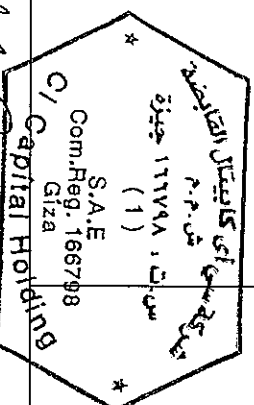 شركة سي أي كابيتال القابضة
ش.م.م
س.ت. ١٦٦٧٩٨ جيزة
(1)
S.A.E
Com.Reg. 166798
Giza
CI Capital Holding